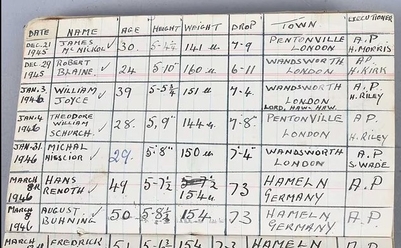 DATE NAME AGE HEIGHT WEIGHT DROP TOWN EXECUTIONER
DEC. 21 1945 JAMES McNICOL 30. 141 7-9 PENTONVILLE LONDON A.P H. MORRIS
DEC 29 1945 ROBERT BLAINE. 24 5-10 160 6-11 WANDSWORTH LONDON A.P. H. KIRK
JAN. 3. 1946 WILLIAM JOYCE 39 151 7-4 WANDSWORTH LONDON LORD. HAW. HAW. A.P. H. RILEY
JAN. 4 1946 THEODORE WILLIAM SCHURCH. 28. 5,9" 144 7-8" PENTONVILLE LONDON A.P H. RILEY
JAN-31 1946 MICHAL 29. 5"8" 150 7"4" WANDSWORTH LONDON A.P S. WADE
MARCH 8 1946 HANS RENOTH 49 5-7½ 154 73 HAMELN GERMANY A.P
MARCH 8 1946 AUGUST BUHNING 50 5-8½ 154 73 HAMELN GERMANY A.P
MARCH FREDRICK 51 HAMELN